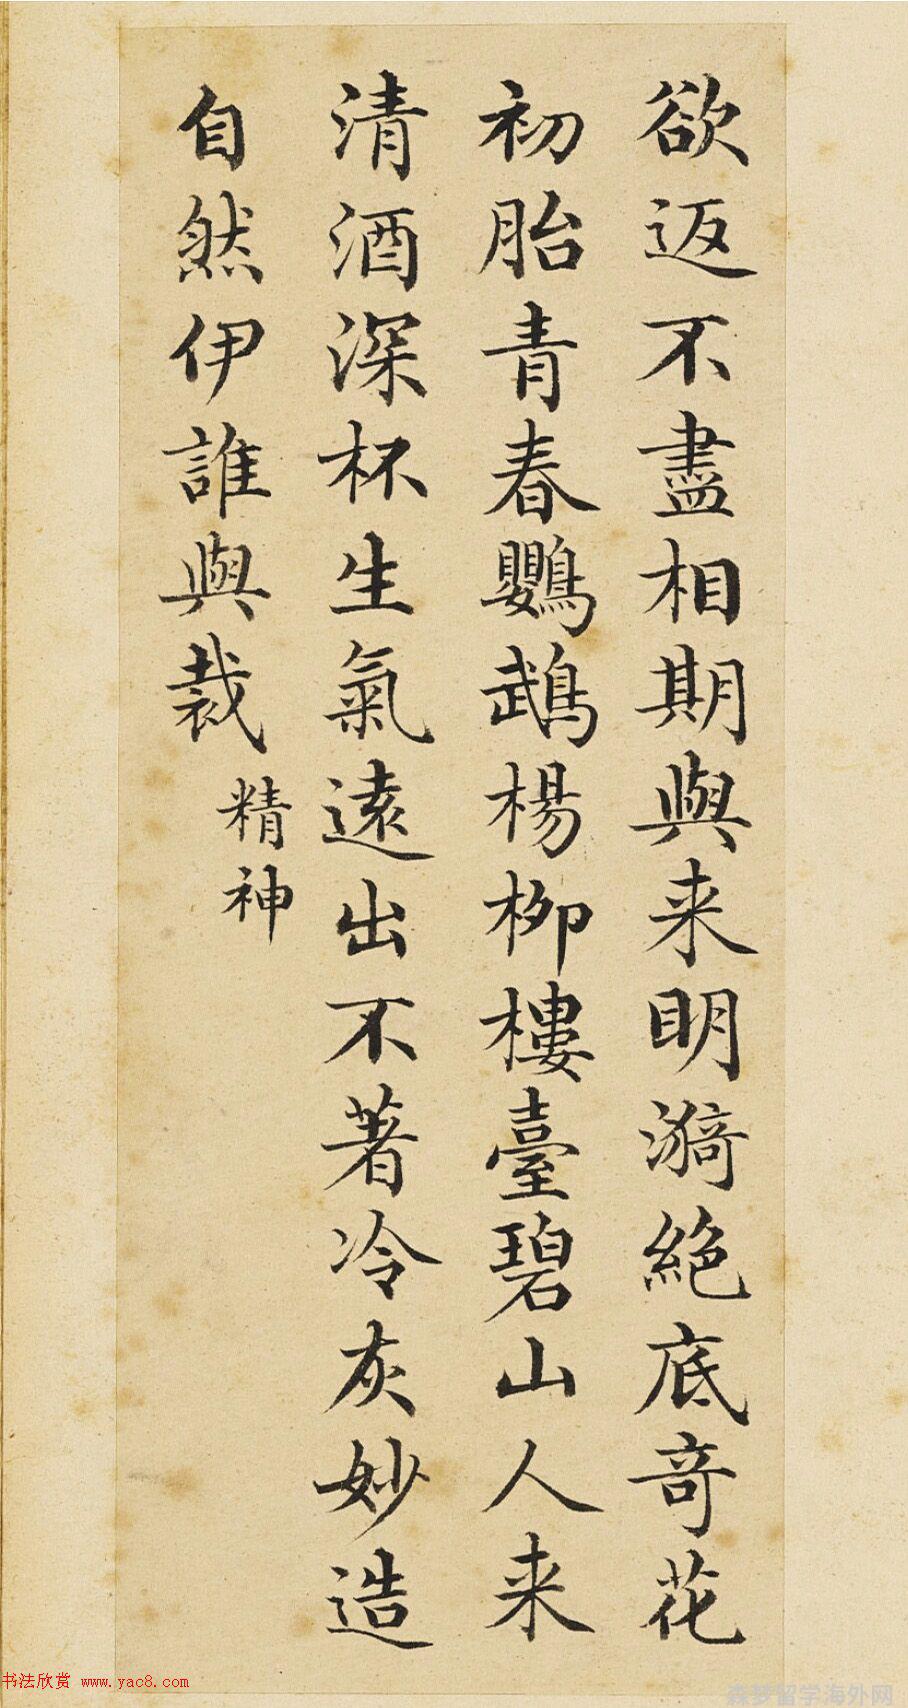 欲返不盡相期與来明漪絶底奇花
初胎青春鸚鵡楊柳樓臺碧山人来
清酒深杯生氣遠出不著冷灰妙造
自然伊誰與裁
精神
书法欣赏 www.yac8.com
森梦留学海外网